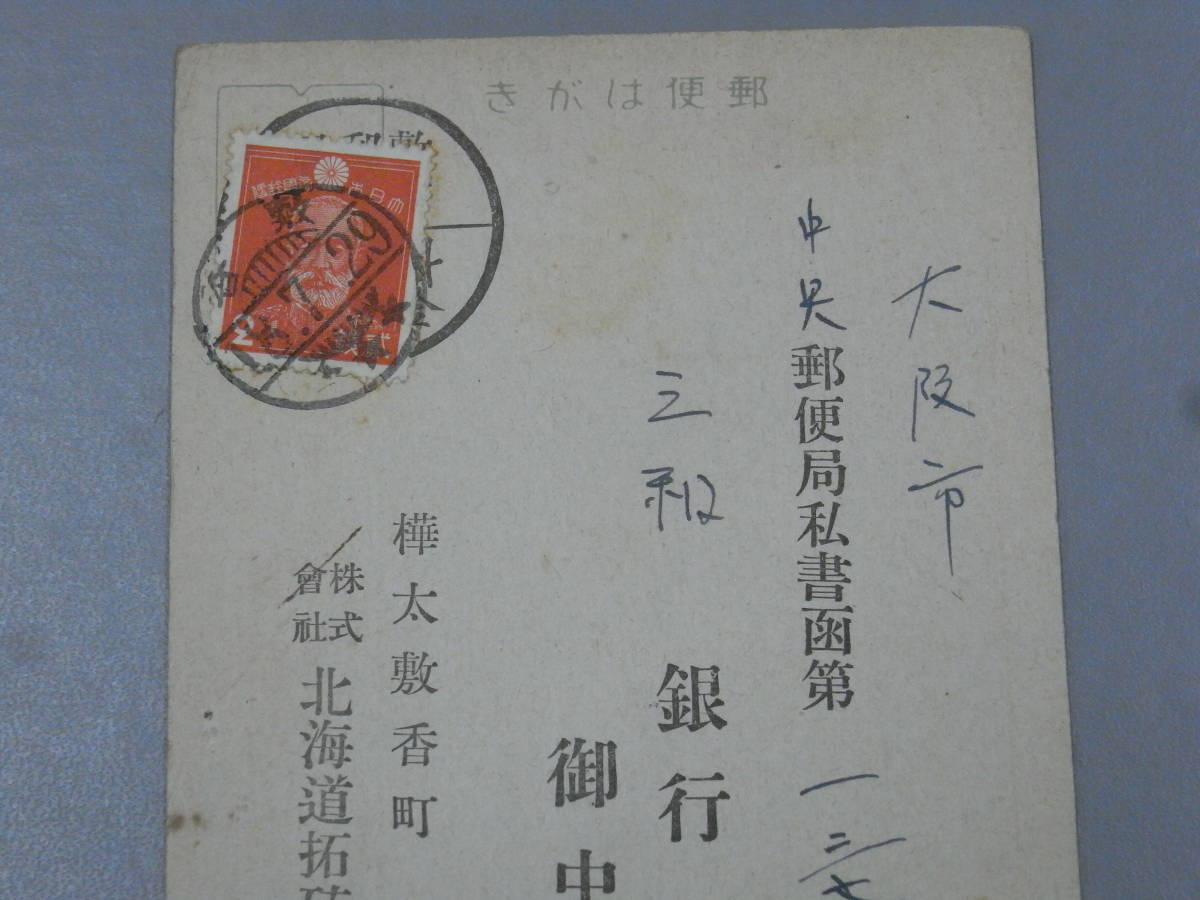 きがは便郵
大阪市
中央郵便局私書函第一
三和銀行
御中
樺太敷香町
株式會社北海道拓
大日本帝國郵便
2
7.29
敷